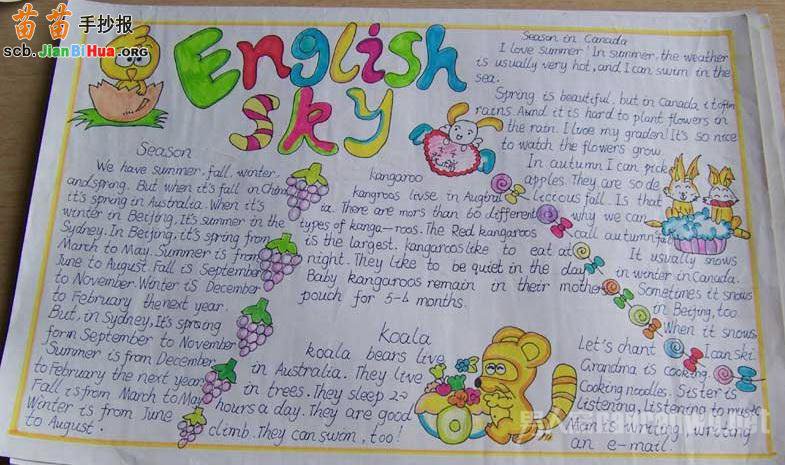 苗苗手抄报
scb.JianBiHua.org
English
Sky
Season
We have summer, fall, winter,
and spring. But when it's fall in China
it's spring in Australia. When it's
winter in Beijing. It's summer in the
Sydney. In Beijing, it's spring from
March to May. Summer is from
June to August. Fall is September
to November. Winter is December
to February the next year.
But, in Sydney, It's spring
form September to November
Summer is from December
to February the next year
Fall is from March to May
Winter is from June
to August.
kangaroo
kangroos livse in Augtral
ia. There are mors than 60 different
types of kanga-roos. The Red kangaroos
is the largest. kangaroos like to eat at
night. They like to be quiet in the day
Baby kangaroos remain in their mother
pouch for 5-6 months.
Koala
koala bears live
in Australia. They live
in trees. They sleep 20
hours a day. They are good
climb. They can swm, too!
Season in Canada
I love summer! In summer, the weather
is usually very hot, and I can swim in the
sea.
Spring is beautiful, but in Canada, it often
rains. Aund it is hard to plant flowers in
the rain. I lvoe my graden! It's so nice
to watch the flowers grow.
In autumn I can pick
apples. They are so de
licious fall. Is that
why we can
call autumn fall
It usually snows
in winter in Canada.
Sometimes it snows
in Beijing, too.
When it snows
I can ski.
Let's chant
Grandma is cooking.
Cooking noodles. Sister is
listening, listening to music
Man is writing writing
an e-mail.